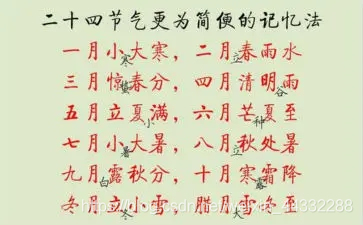 二十四节气更为简便的记忆法
一月小大寒，二月春雨水
寒 立
三月惊春分，四月清明雨
蛰 谷
五月立夏满，六月芒夏至
小 种
七月小大暑，八月秋处暑
暑 立
九月露秋分，十月寒霜降
白 露
冬月立小雪，腊月雪冬至
冬 大